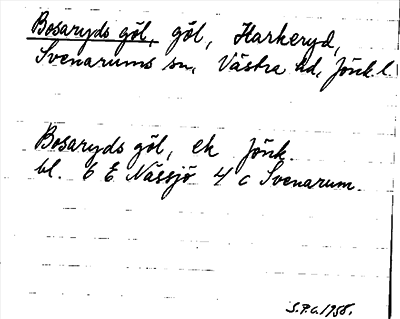 Bosaryds göl, göl, Harkeryd,
Svenarums sn, Västra hd, Jönk. l.
Bosaryds göl, ek Jönk.
bl. 6 E Nässjö 4 c Svenarum.
S.P.G. 1958.